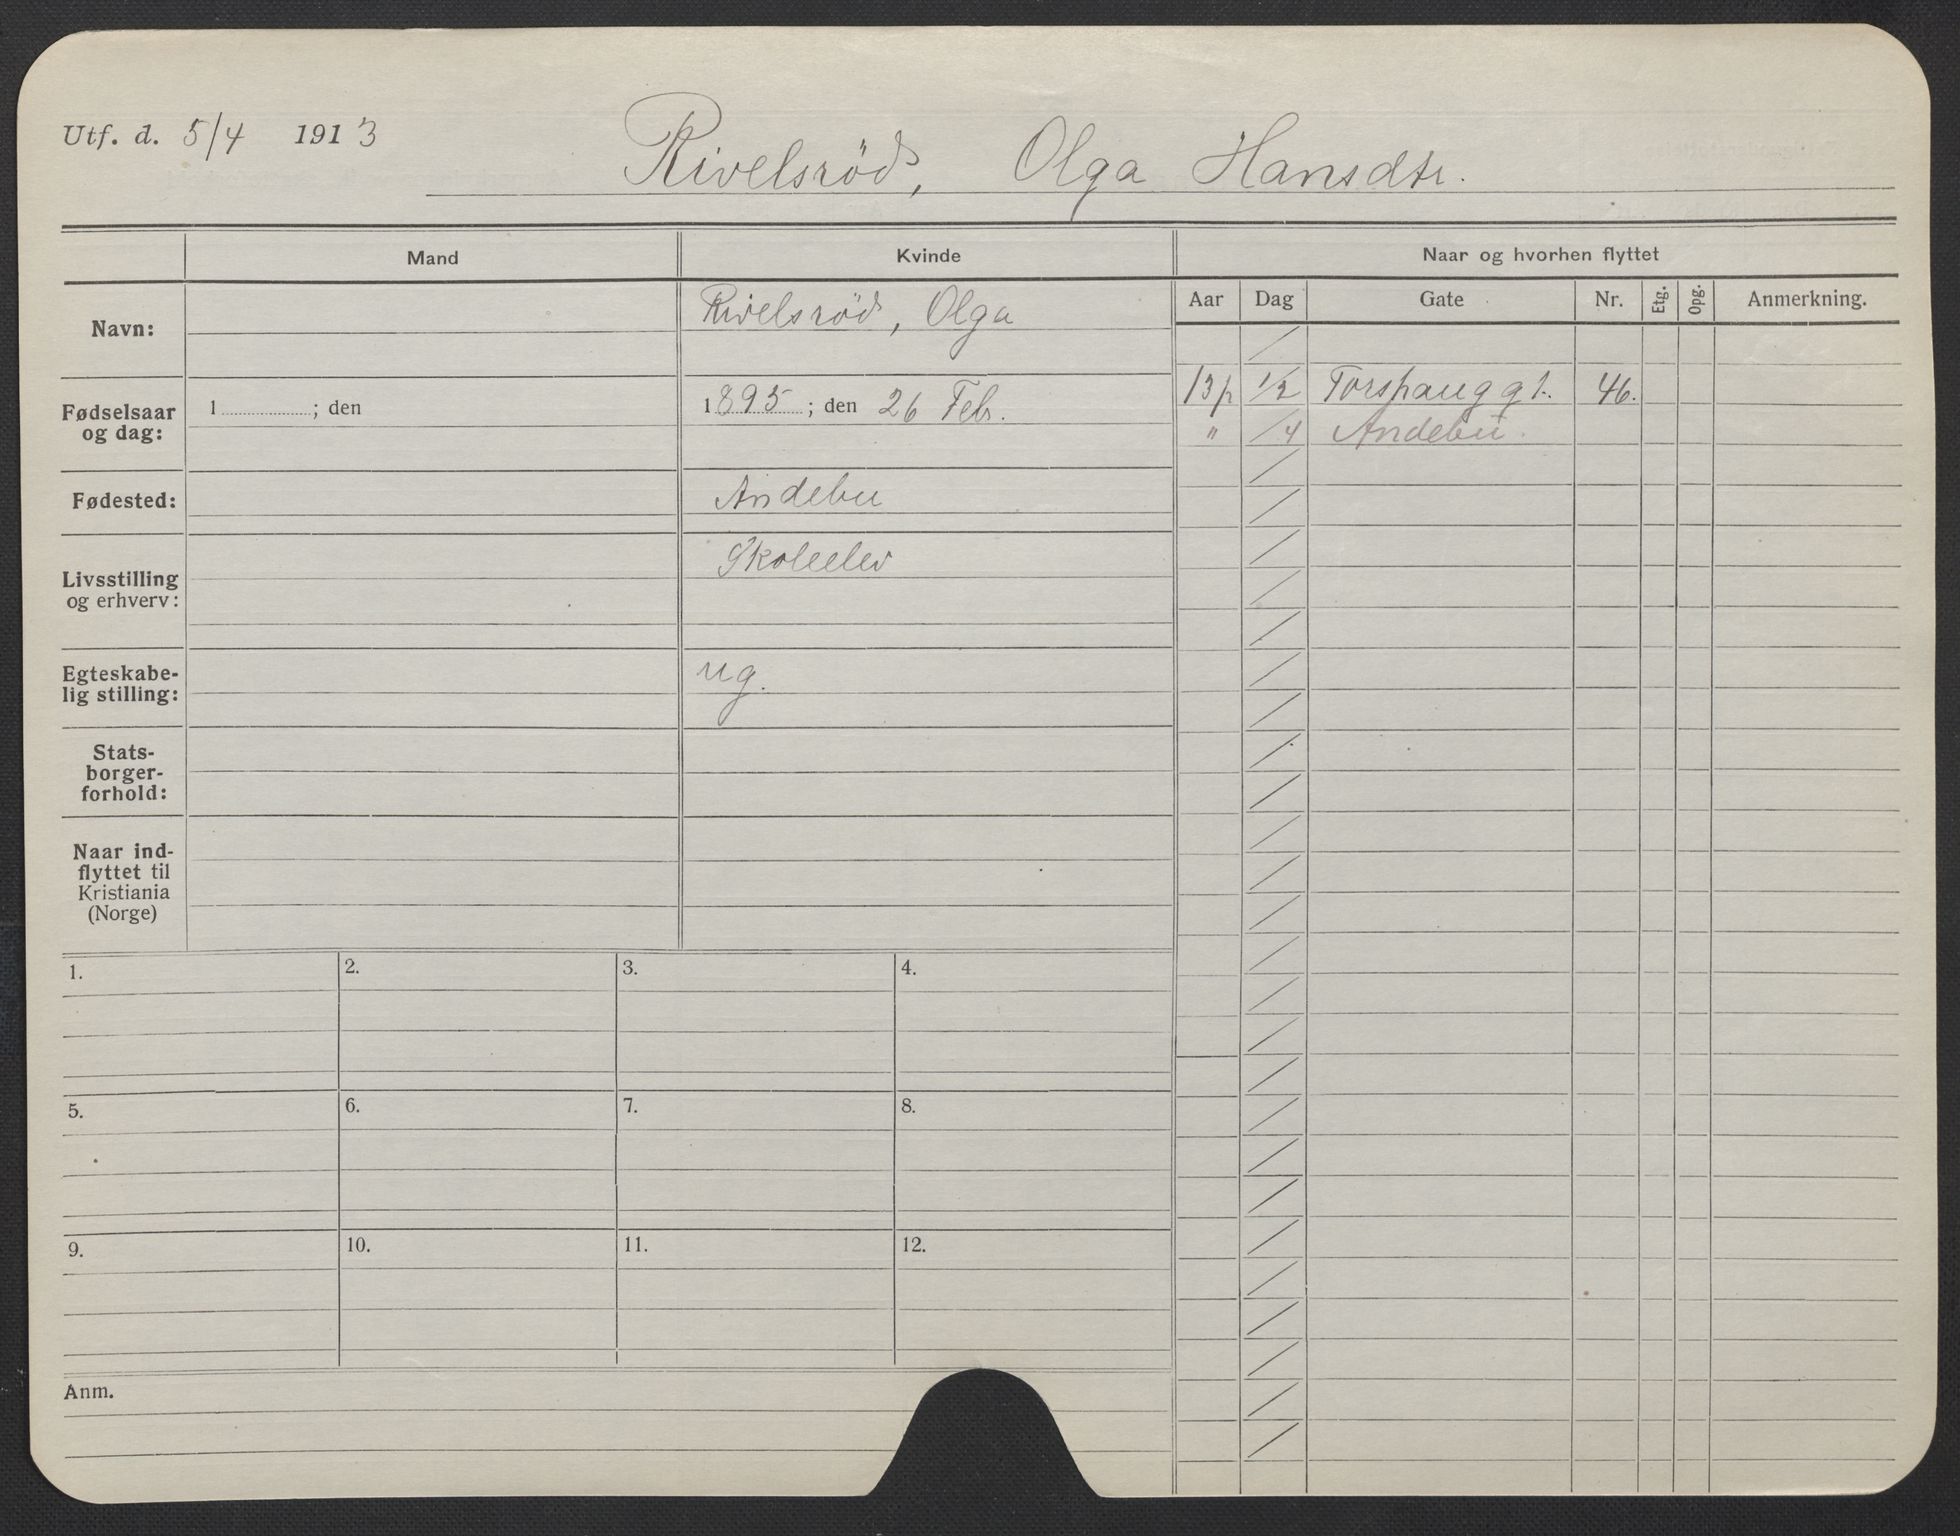 Utf. d. 5/4 1913
Rivelsröd, Olga Hansdtr.
Mand Kvinde Naar og hvorhen flyttet
Aar Dag Gate Nr. Etg. Opg. Anmerkning.
Navn: Rivelsröd, Olga
Fødselsaar og dag: 1 ; den 1895 ; den 26 Feb.
13p 1/2 Torshaug gt. 46.
" /4 Andebu.
Fødested: Andebu
Livsstilling og erhverv: Skoleelev
Egteskabe-
lig stilling: ug.
Stats-
borger-
forhold:
Naar ind-
flyttet til
Kristiania
(Norge)
1. 2. 3. 4.
5. 6. 7. 8.
9. 10. 11. 12.
Anm.